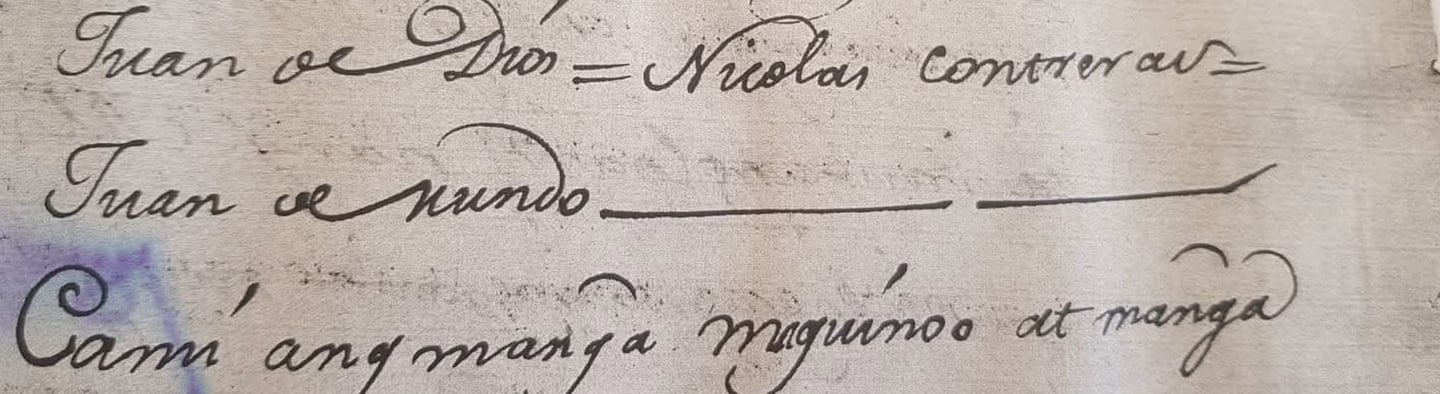 Juan de Dios = Nicolas Contreras =
Juan de Mundo
Cami ang manga maguinoo at manga